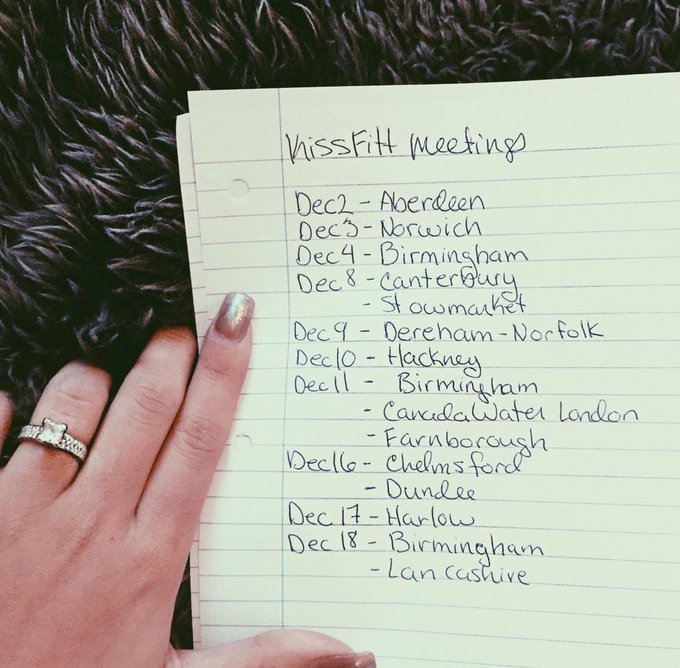 KissFitt Meetings
Dec 2 - Aberdeen
Dec 3 - Norwich
Dec 4 - Birmingham
Dec 8 - Canterbury
- Stowmarket
Dec 9 - Dereham - Norfolk
Dec 10 - Hackney
Dec 11 - Birmingham
- Canada Water London
- Farnborough
Dec 16 - Chelmsford
- Dundee
Dec 17 - Harlow
Dec 18 - Birmingham
- Lan cashire